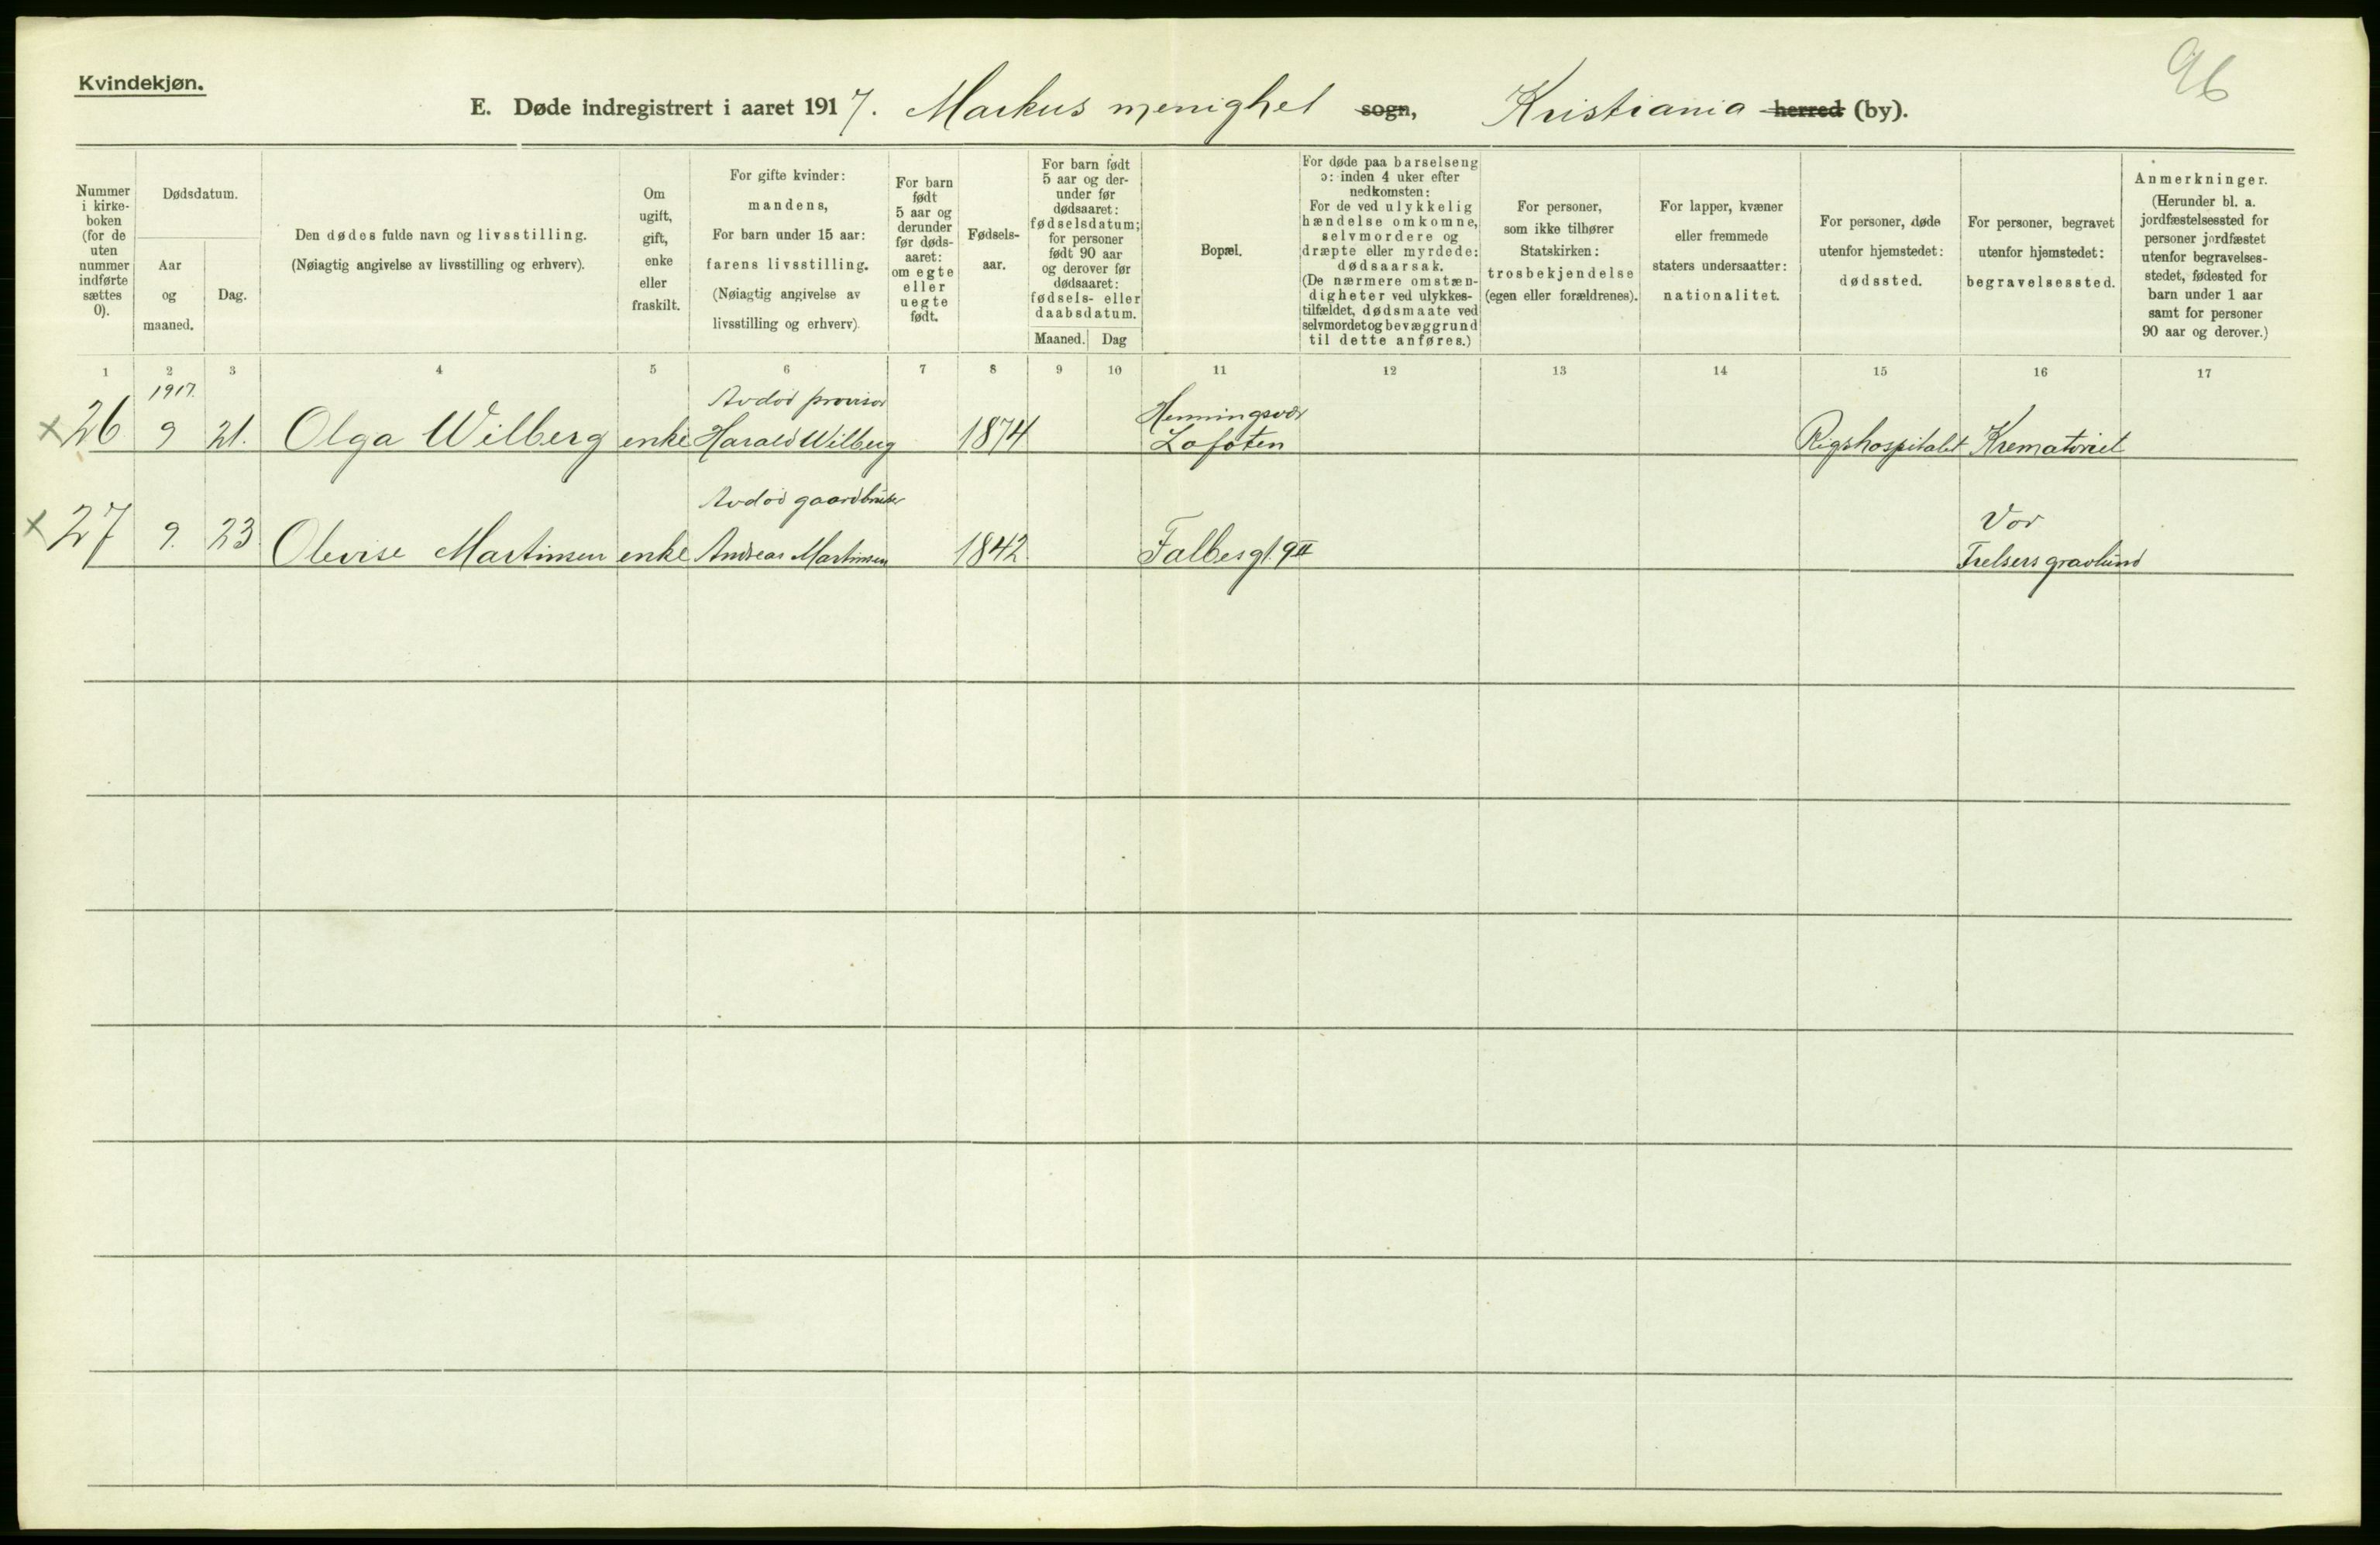 96
Kvindekjøn.
E. Døde indregistrert i aaret 1917. Markus menighet sogn, Kristiania herred (by).
Nummer i kirke-boken (for de uten nummer indførte sættes 0).
Dødsdatum.
Aar og maaned.
Dag.
Den dødes fulde navn og livsstilling.
(Nøiagtig angivelse av livsstilling og erhverv).
Om ugift, gift, enke eller fraskilt.
For gifte kvinder:
mandens,
For barn under 15 aar:
farens livsstilling.
(Nøiagtig angivelse av
livsstilling og erhverv).
For barn født 5 aar og derunder før døds-aaret: om egte eller uegte født.
Fødsels-aar.
For barn født
5 aar og der-
under før
dødsaaret:
fødselsdatum;
for personer
født 90 aar
og derover før
dødsaaret:
fødsels- eller
daabsdatum.
Maaned. Dag
Bopæl.
For døde paa barselseng
ɔ: inden 4 uker efter
nedkomsten:
For de ved ulykkelig
hændelse omkomne,
selvmordere og
dræpte eller myrdede:
dødsaarsak.
(De nærmere omstæn-
digheter ved ulykkes-
tilfældet, dødsmaate ved
selvmordet og bevæggrund
til dette anføres.)
For personer,
som ikke tilhører
Statskirken:
trosbekjendelse
(egen eller forældrenes).
For lapper, kvæner
eller fremmede
staters undersaatter:
nationalitet.
For personer, døde
utenfor hjemstedet:
dødssted.
For personer, begravet
utenfor hjemstedet:
begravelsessted.
Anmerkninger.
(Herunder bl. a.
jordfæstelsessted for
personer jordfæstet
utenfor begravelses-
stedet, fødested for
barn under 1 aar
samt for personer
90 aar og derover.)
1 2 3 4 5 6 7 8 9 10 11 12 13 14 15 16 17
1917. Avdød provisor Henningsvær
x 26 9 21. Olga Wilberg enke Harald Wilberg 1874 Lofoten Rigshospitalet Krematoriet
Avdød gaardbruker Vor
x 27 9. 23 Olevise Martinsen enke Andreas Martinsen 1842 Falbesgt. 9 II Frelsers gravlund